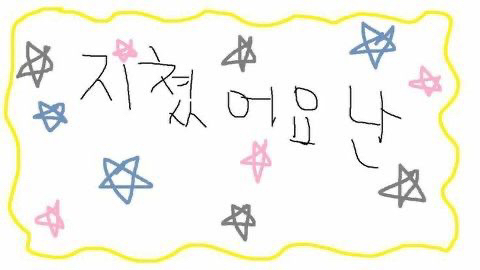 지쳤어요 난